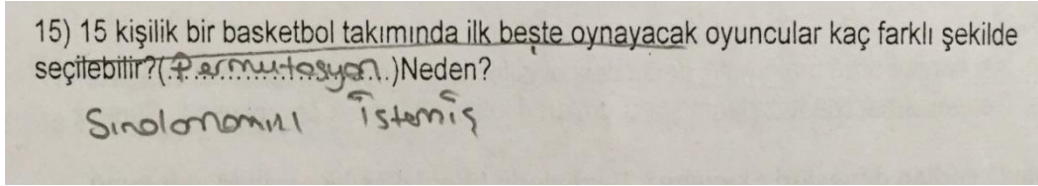 15) 15 kişilik bir basketbol takımında ilk beşte oynayacak oyuncular kaç farklı şekilde
seçilebilir?(.Permutasyon..)Neden?
Sıralamamızı istemiş